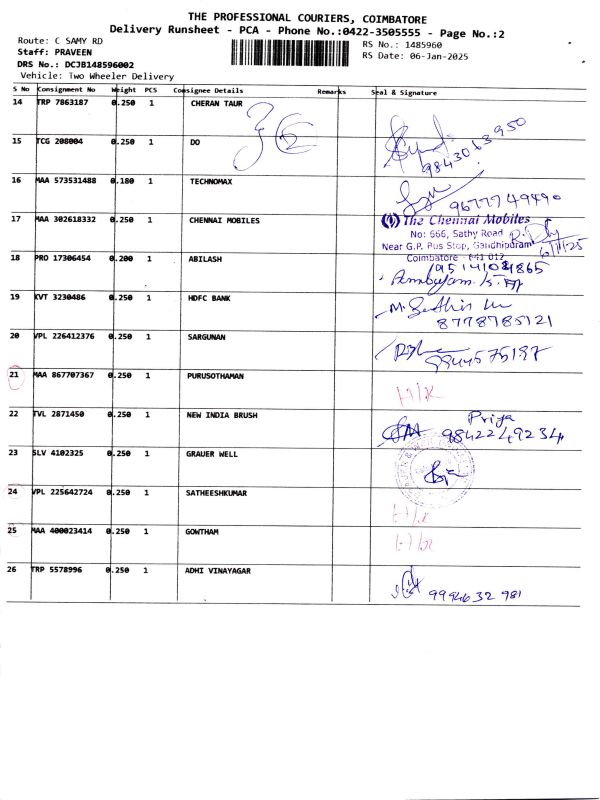 THE PROFESSIONAL COURIERS, COIMBATORE
Delivery Runsheet - PCA - Phone No.:0422-3505555 - Page No.:2
Route: C SAMY RD
RS No.: 1485960
Staff: PRAVEEN
RS Date: 06-Jan-2025
DRS No.: DCJB148596002
Vehicle: Two Wheeler Delivery
S No Consignment No Weight PCS Consignee Details Remarks Seal & Signature
14 TRP 7863187 0.250 1 CHERAN TAUR
2
9843063950
15 TCG 208004 0.250 1 DO
16 MAA 573531488 0.180 1 TECHNOMAX
9677749490
17 MAA 302618332 0.250 1 CHENNAI MOBILES
The Chennai Mobiles
No: 666, Sathy Road
Near G.P. Pus Stop, Gandhipuram
Coimbatore - 641 012
18 PRO 17306454 0.200 1 ABILASH
19 KVT 3230486 0.250 1 HDFC BANK
8778785121
20 VPL 226412376 0.250 1 SARGUNAN
21 MAA 867707367 0.250 1 PURUSOTHAMAN
22 TVL 2871450 0.250 1 NEW INDIA BRUSH
Priya
9842249234
23 SLV 4102325 0.250 1 GRAUER WELL
24 VPL 225642724 0.250 1 SATHEESHKUMAR
25 MAA 400023414 0.250 1 GOWTHAM
26 TRP 5578996 0.250 1 ADHI VINAYAGAR
9994632 981